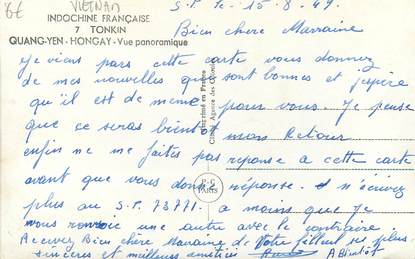 6€ VIETNAM
INDOCHINE FRANÇAISE
7 TONKIN
QUANG-YEN - HONGAY - Vue panoramique
S.P. le 15-8-49
Bien chère Marraine
Je viens pars cette carte vous donnez
de mes nouvelles qui sont bonnes et j'espère
qu'il est de même pour vous. Je pense
que ce seras bientôt mon Retour
enfin ne me faites pas reponse a cette carte
avant que vous donné réponse n'écrivez
plus au S.P. 73771. a moins que je
vous une autre avec le contraire
Bien chère Marraine de Votre filleul ses plus
sincères et meilleurs amitiés A Bientôt
Imprimé en France
P-C
PARIS